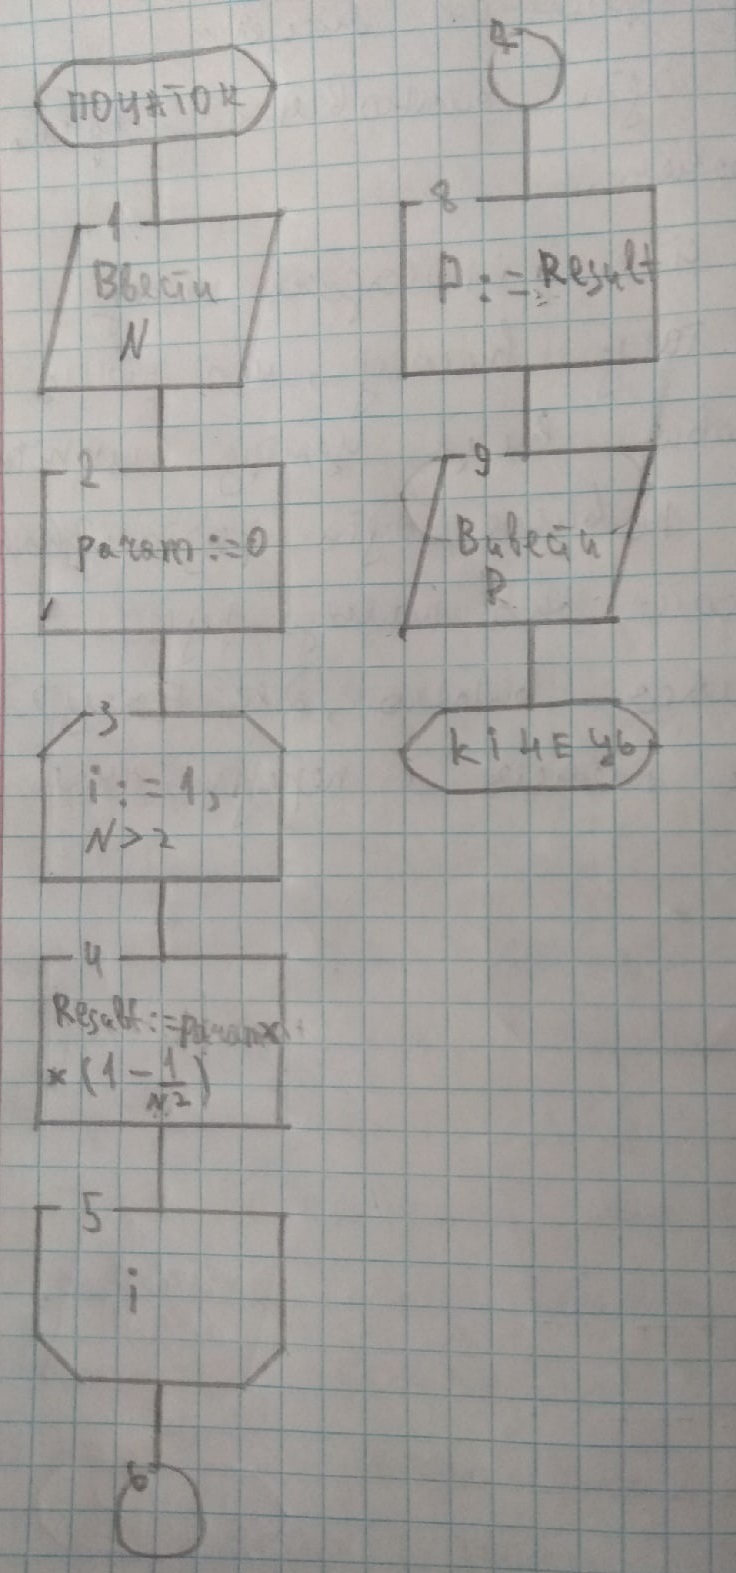 початок
1
Ввести
N
2
param := 0
3
i := 1,
N > 2
4
Result := param x
x (1 - 1/N²)
5
i
6
7
8
P := Result
9
Вивести
P
кінець